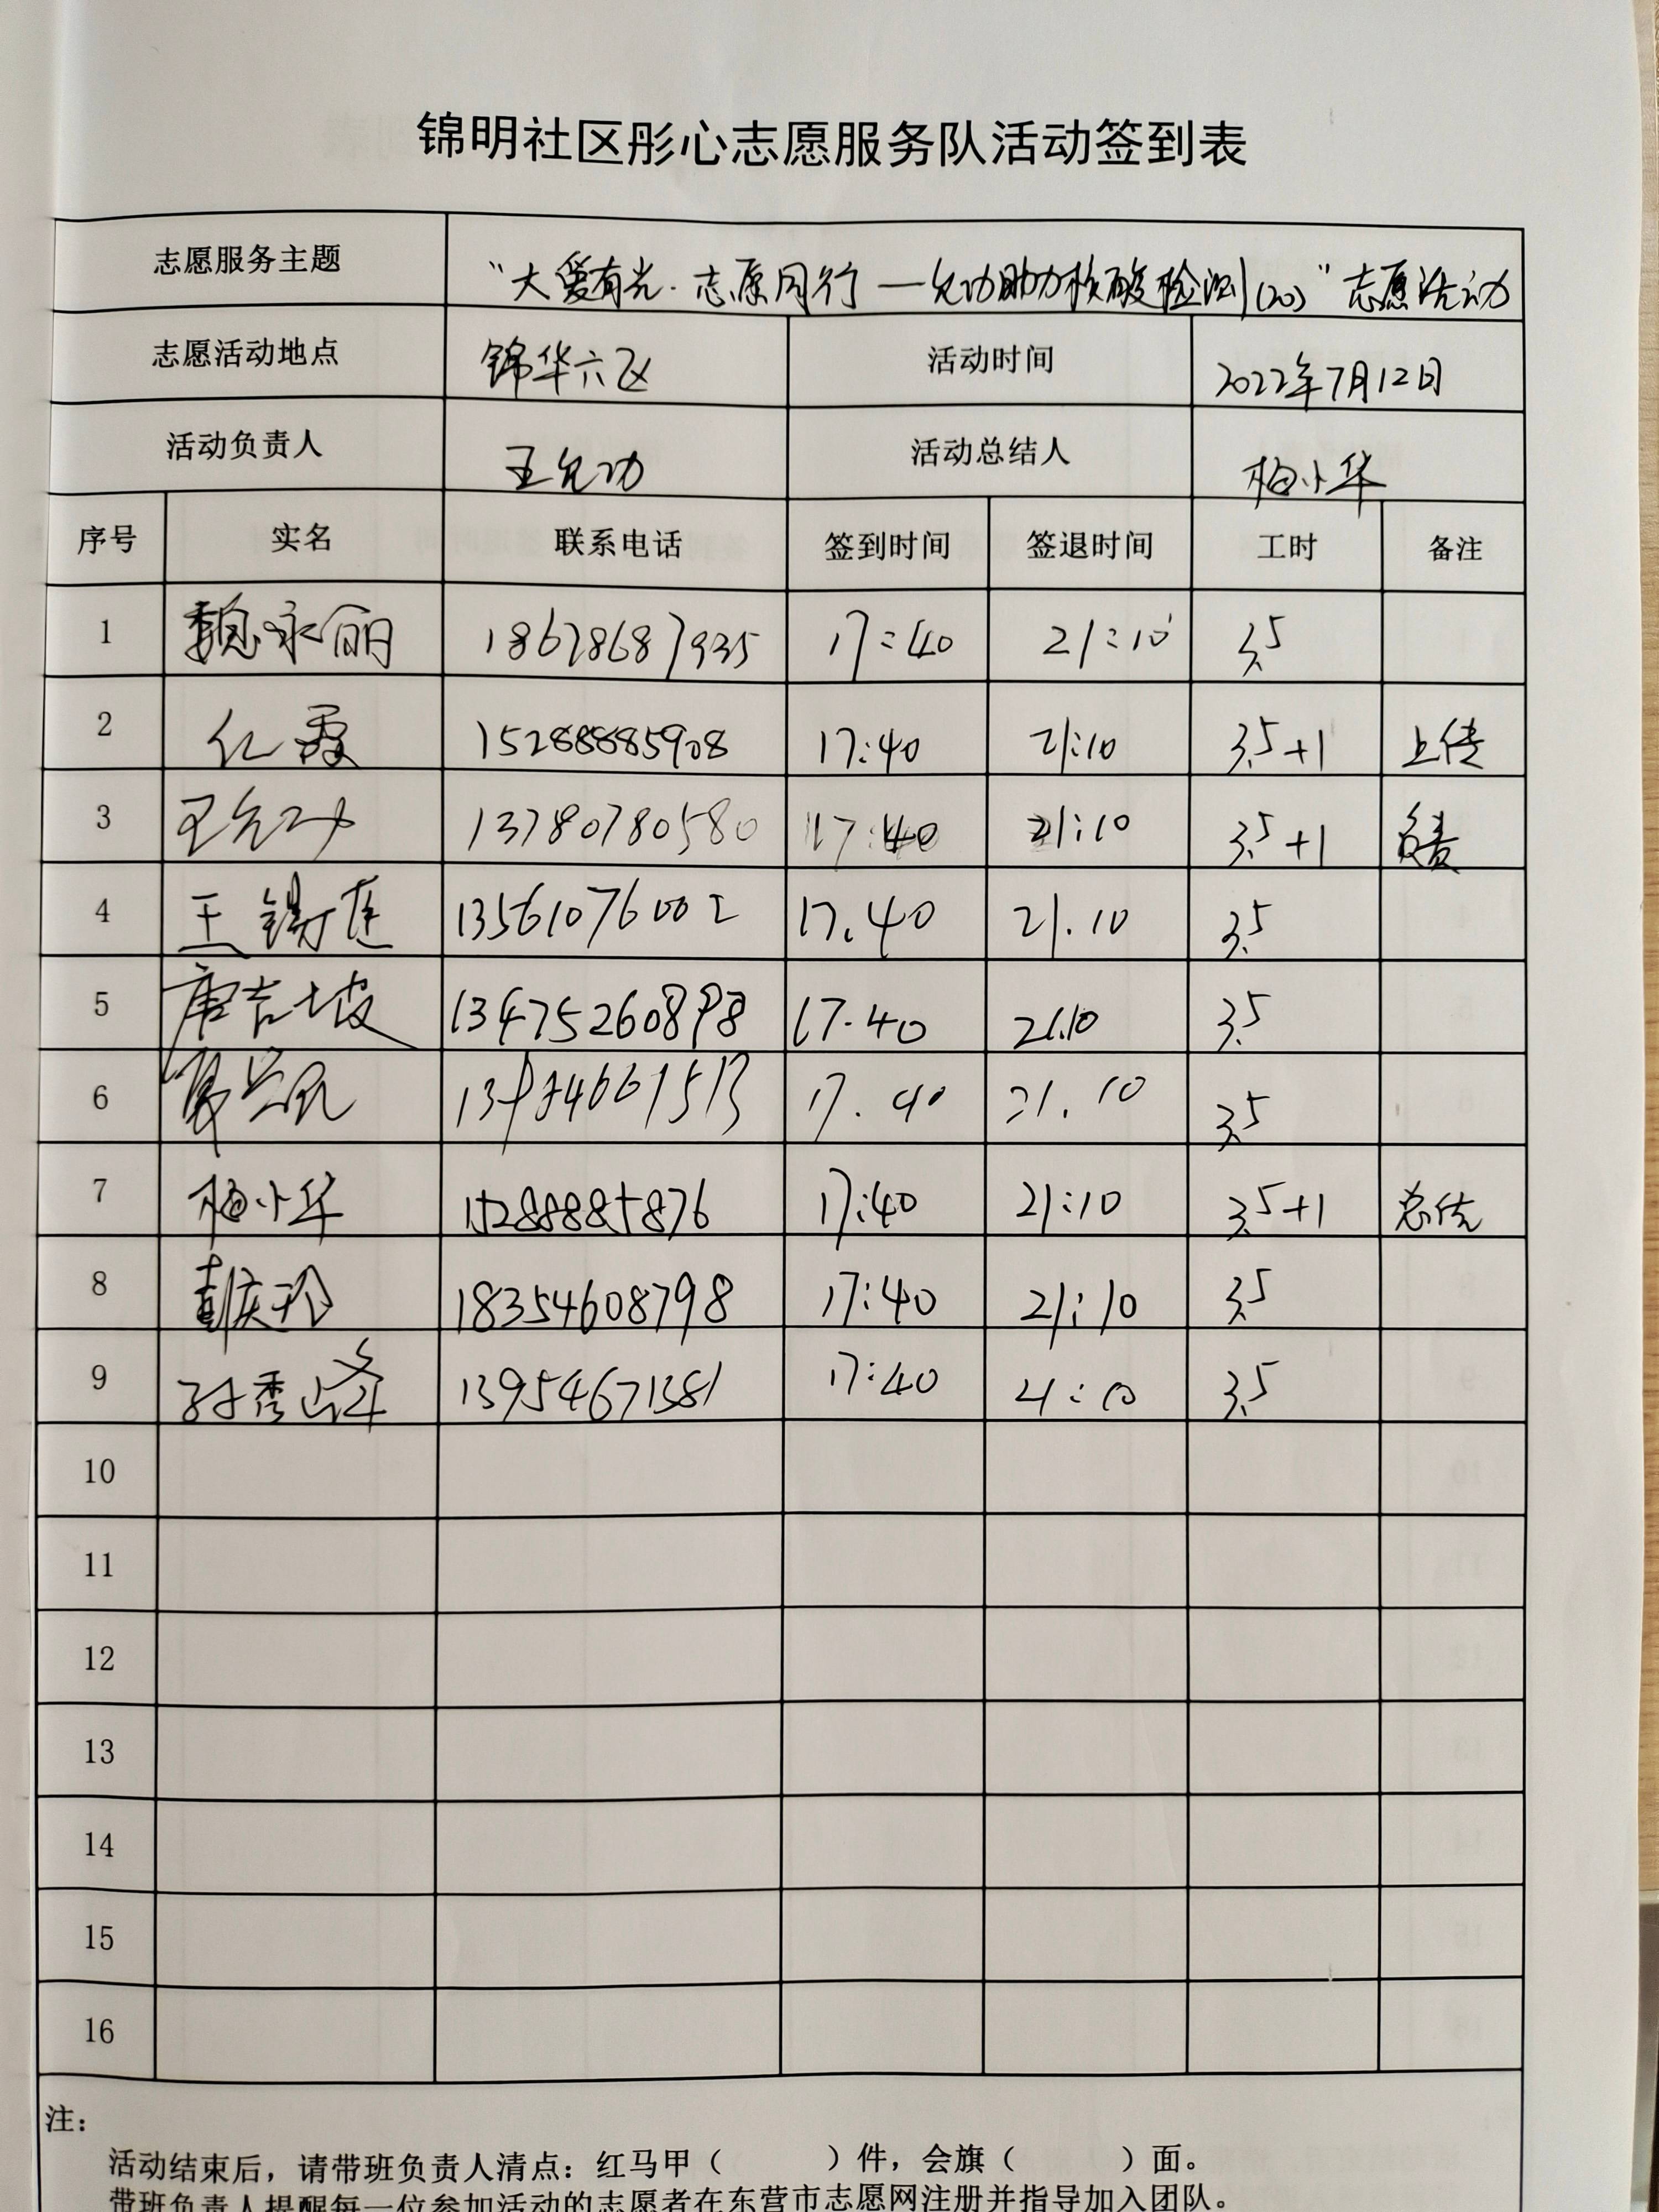 锦明社区彤心志愿服务队活动签到表
志愿服务主题 “大爱有光·志愿同行—允功助力核酸检测(20)”志愿活动
志愿活动地点 锦华六区 活动时间 2022年7月12日
活动负责人 王允功 活动总结人 梅小华
序号 实名 联系电话 签到时间 签退时间 工时 备注
1 魏永丽 18678687935 17:40 21:10 3.5
2 仁霞 15288885908 17:40 21:10 3.5+1 上传
3 王允功 13780780580 17:40 21:10 3.5+1 负责
4 王锡莲 13561076002 17.40 21.10 3.5
5 唐吉坡 13475260898 17.40 21.10 3.5
6 17.40 21.10 3.5
7 梅小华 15288885876 17:40 21:10 3.5+1 总结
8 彭庆玲 18354608798 17:40 21:10 3.5
9 孙秀峰 13954671381 17:40 21:10 3.5
10
11
12
13
14
15
16
注:
活动结束后，请带班负责人清点：红马甲（ ）件，会旗（ ）面。
带班负责人提醒每一位参加活动的志愿者在东营市志愿网注册并指导加入团队。